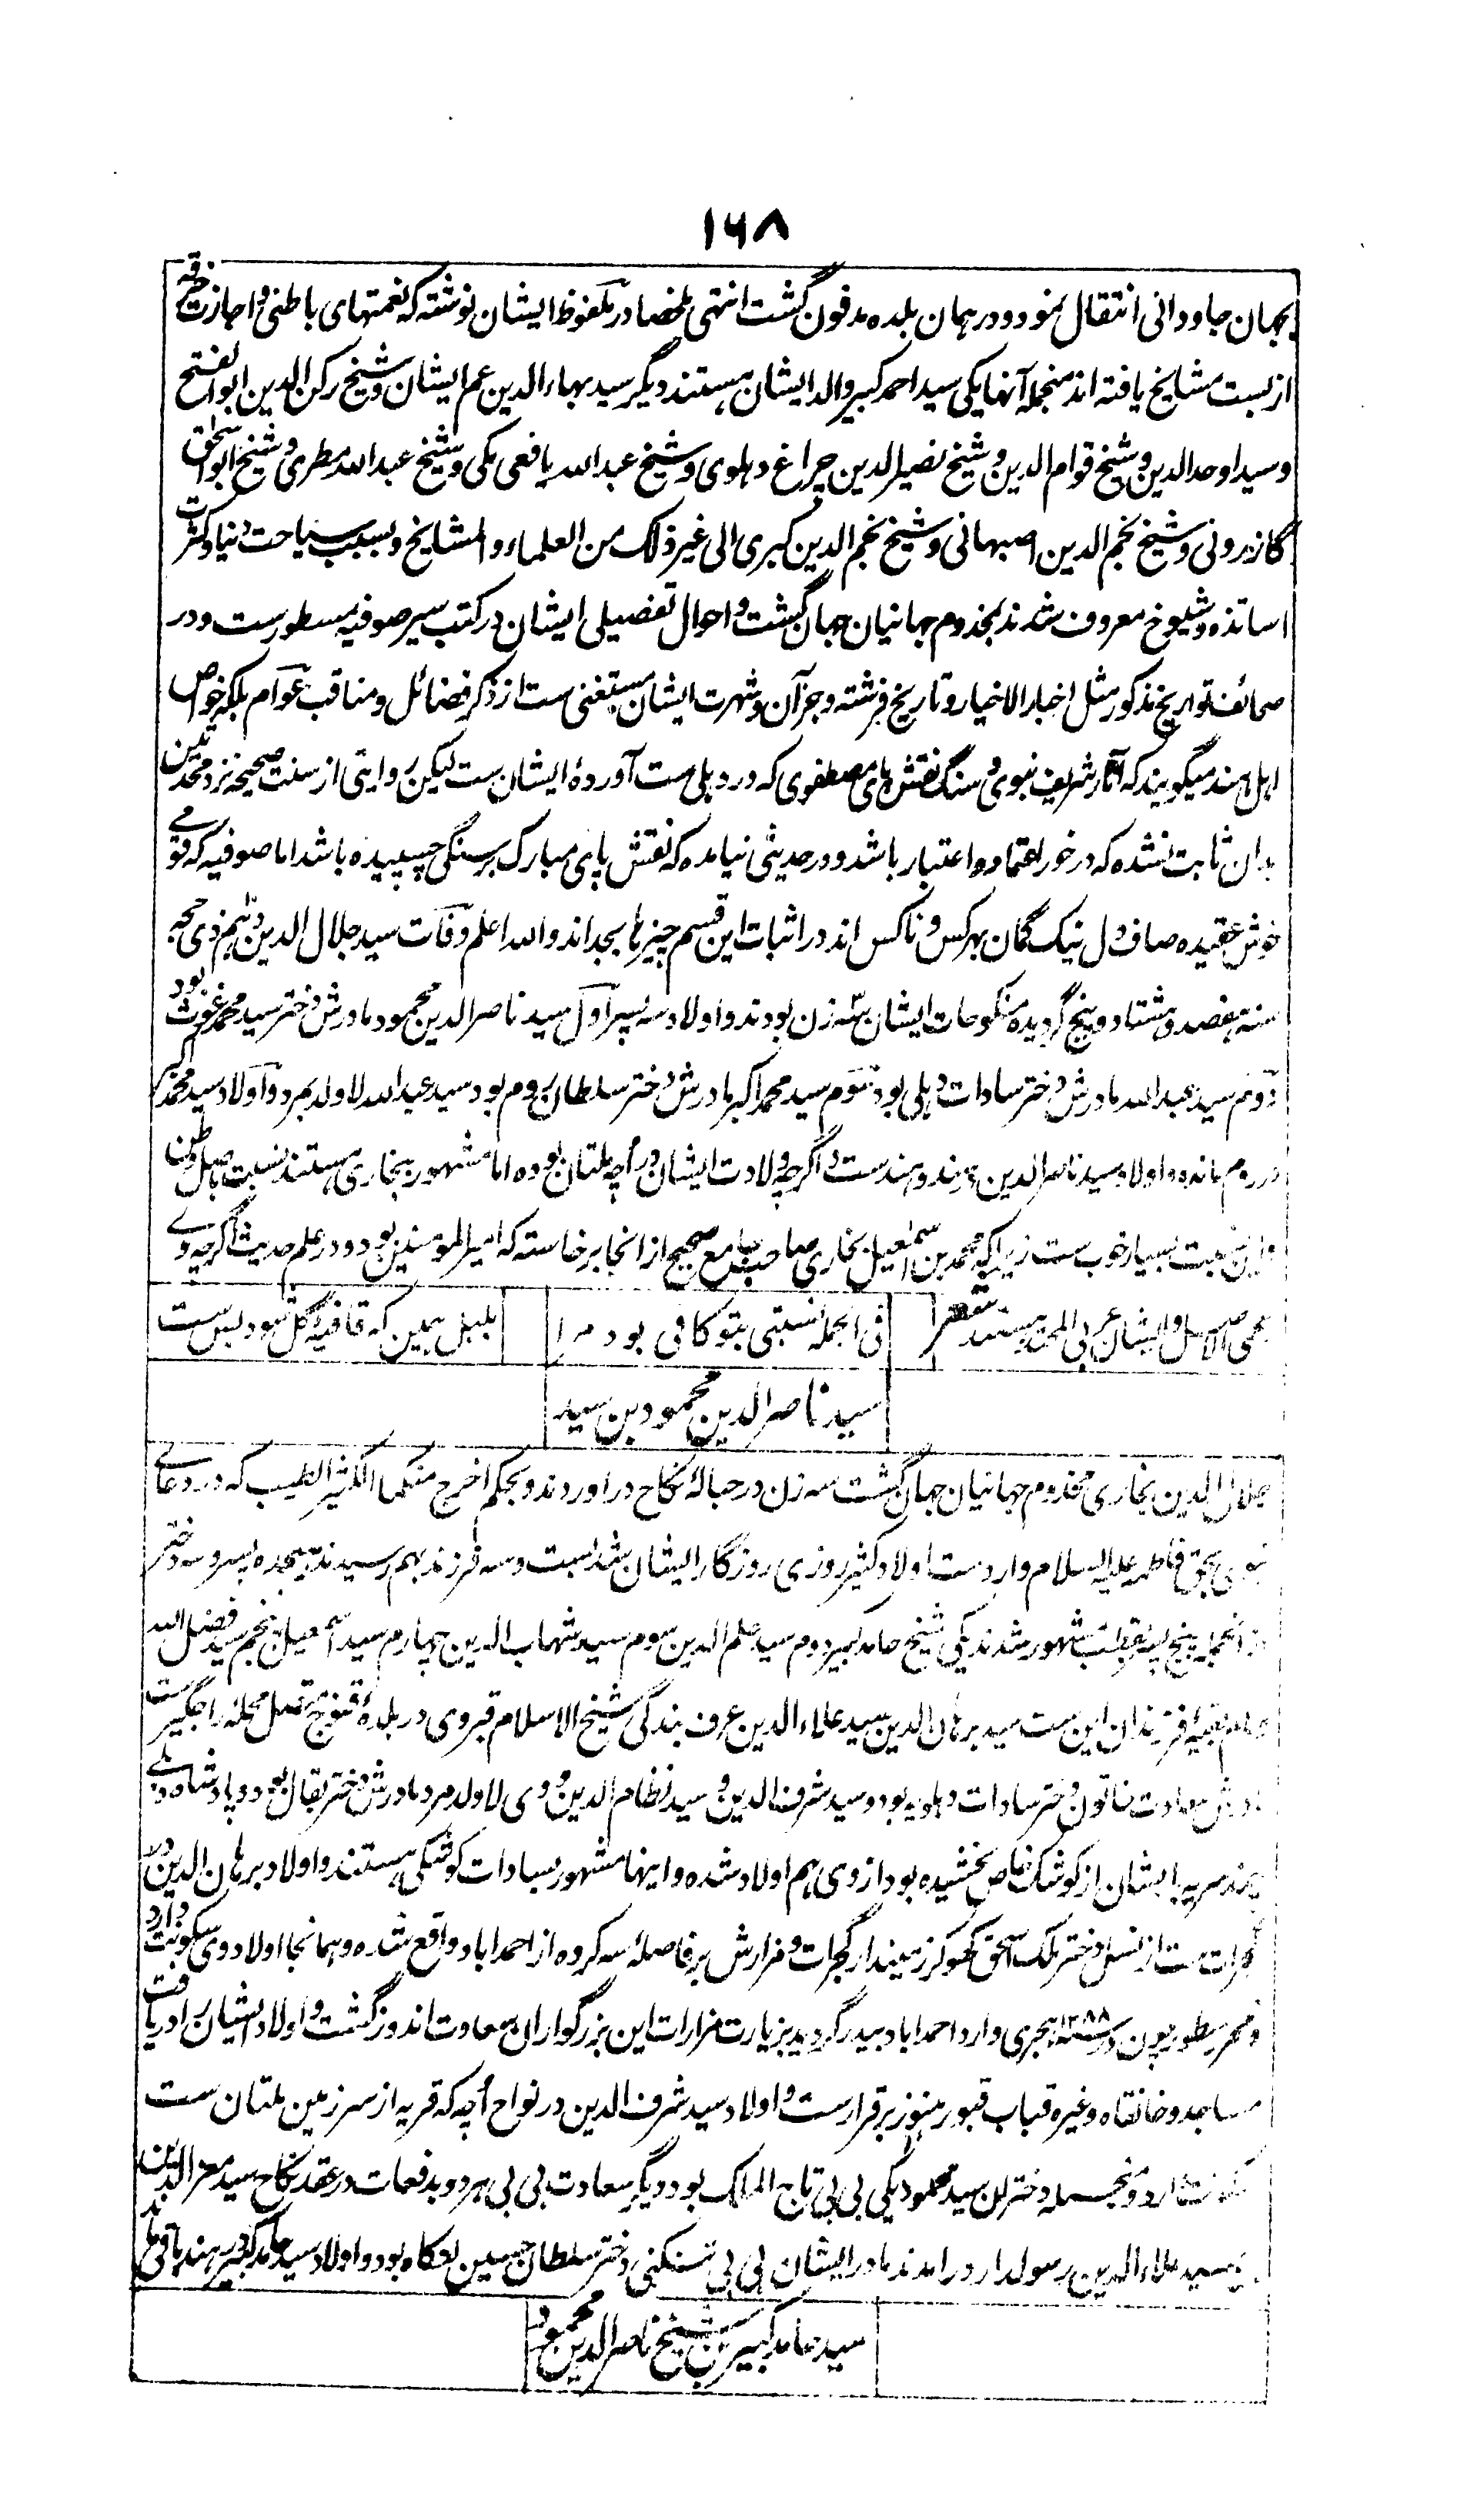 ۱۶۸
بجهان جاودانی انتقال نمود و در همان بلده مدفون گشت انتهی ملخصا در ملفوظ ایشان نوشته که نعمتهای باطنی و اجازت خرقه
از بست مشایخ یافته اند منجمله آنها یکی سید احمد کبیر والد ایشان هستند دیگر سید بهاء الدین عم ایشان و شیخ رکن الدین ابو الفتح
و سید اوحد الدین و شیخ قوام الدین و شیخ نصیر الدین چراغ دهلوی و شیخ عبد الله یافعی مکی و شیخ عبد الله مطری و شیخ ابو اسحق
گازرونی و شیخ نجم الدین اصبهانی و شیخ نجم الدین کبری الی غیر ذلک من العلماء و المشایخ و بسبب سیاحت دنیا و کثرت
اساتذه و شیوخ معروف شدند بمخدوم جهانیان جهان گشت و احوال تفصیلی ایشان در کتب سیر صوفیه مسطورست و در
صحائف تواریخ مذکور مثل اخبار الاخیار و تاریخ فرشته و جز آن و شهرت ایشان مستغنی ست از ذکر فضائل و مناقب عوام بلکه خواص
اهل هند میگویند که آثار شریف نبوی و سنگ نقش پای مصطفوی که در دهلی ست آوردهٔ ایشان ست لیکن روایتی از سنت صحیحه نزد محدثین
بدان ثابت نشده که درخور اعتماد و اعتبار باشد و در حدیثی نیامده که نقش پای مبارک بر سنگی چسپیده باشد اما صوفیه که قومے
خوش عقیده صاف دل نیک گمان بهر کس و ناکس اند در اثبات این قسم چیزها بجد اند والله اعلم وفات سید جلال الدین دهم ذی حجه
سنه هفصد و هشتاد و پنج گردیده منکوحات ایشان سه زن بودند و اولاد سه پسر اول سید ناصر الدین محمود مادرش دختر سید محمد غوث بود
دوم سید عبد الله مادرش دختر سادات دهلی بود سوم سید محمد اکبر مادرش دختر سلطان روم بود سید عبد الله لاولد بمرد و اولاد سید محمد اکبر
در روم مانده و اولاد سید ناصر الدین بهند و سندست و اگرچه ولادت ایشان در اُچه ملتان بوده اما مشهور ببخاری هستند نسبت باصل وطن
و این نسبت بسیار خوب ست زیرا که محمد بن اسمعیل بخاری صاحب جامع صحیح از انجا برخاسته که امیر المومنین بود در علم حدیث اگرچه وے
عجمی الاصل و ایشان عربی المحتد هستند شعر فی الجمله نسبتی بتو کافی بود مرا بلبل همین که قافیهٔ گل شود بس ست
سید ناصر الدین محمود بن سید
جلال الدین بخاری مخدوم جهانیان جهان گشت سه زن در حبالهٔ نکاح در اوردند و بحکم اخرج منکما الکثیر الطیب که در دعاے
نبوی بحق فاطمه علیها السلام واردست اولاد کثیر روزی روزگار ایشان شد بست و سه فرزند بهم رسیدند هیجده پسر و سه دختر
از آنجمله پنج پسر بقطب مشهور شدند یکی شیخ حامد کبیر دوم سید علم الدین سوم سید شهاب الدین چهارم سید اسمعیل پنجم سید فضل الله
و نام بقیهٔ فرزندان این ست سید برهان الدین سید علاء الدین عرف بندگی شیخ الاسلام قبر وی در بلدهٔ قنوج متصل محلهٔ راجگیرست
مادرش سعادت خاتون دختر سادات دهلویه بود و سید شرف الدین و سید نظام الدین وی لاولد مرد مادرش دختر بقال بود و پادشاه دهلے
چند سریه بایشان از کوشک خاص بخشیده بود از وی هم اولاد شده و اینها مشهور بسادات کوشکی هستند و اولاد برهان الدین در
گجرات ست از نسل دختر ملک اسحق کهوکر زمیندار گجرات و مزارش بر فاصلهٔ سه کروه از احمداباد واقع شده و همانجا اولاد وی سکونت دارد
و محرر سطور چون در ۱۲۸۸ سنه هجری وارد احمداباد بیدر گردید بزیارت مزارات این بزرگواران سعادت اندوز گشت و اولاد ایشان را دریافت
مساجد و خانقاه و غیره قباب قبور هنوز برقرارست و اولاد سید شرف الدین در نواح اُچه که قریه از سرزمین ملتان ست
سکونت دارد و منجمله دختران سید محمود یکی بی بی تاج الملک بود دیگر سعادت بی بی هر دو بدفعات در عقد نکاح سید معز الدین
بن سید علاء الدین رسولدار درامدند مادر ایشان بی بی دختر سلطان حسین بود و اولاد سید حامد کبیر بهند باقی ماند
سید حامد کبیر بن شیخ ناصر الدین محمود